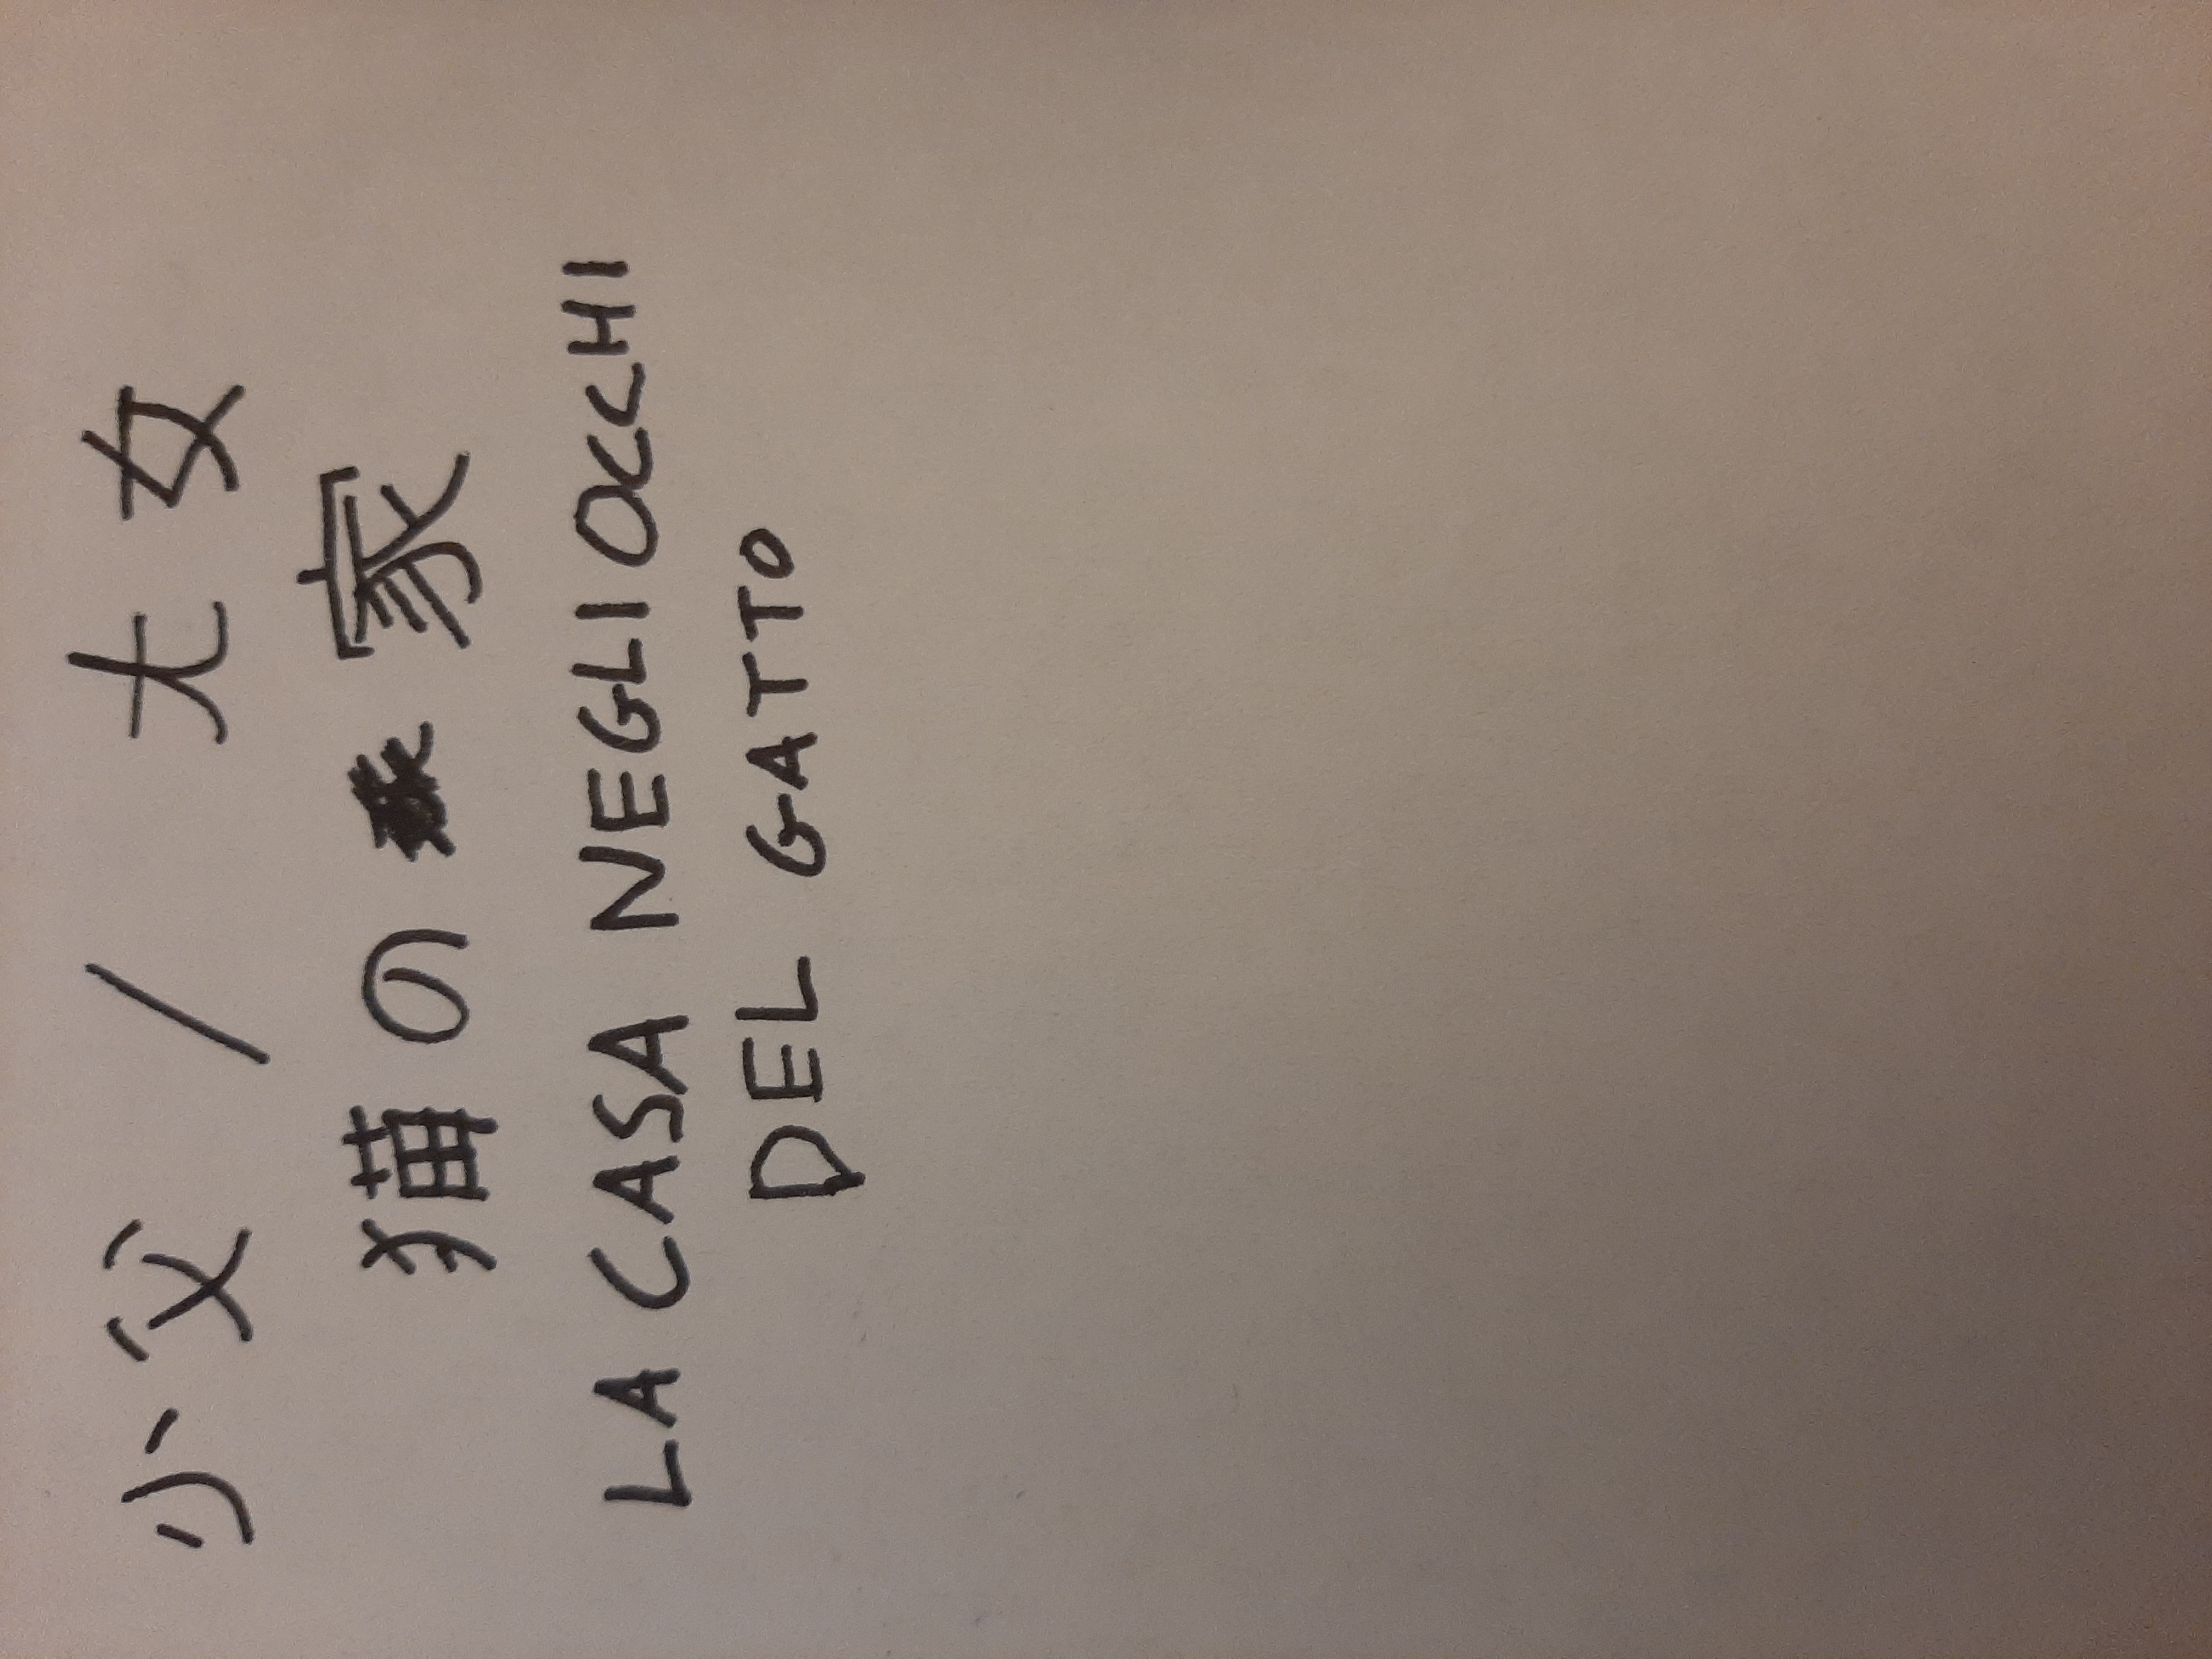 小父 / 大女
猫の家
LA CASA NEGLI OCCHI
DEL GATTO